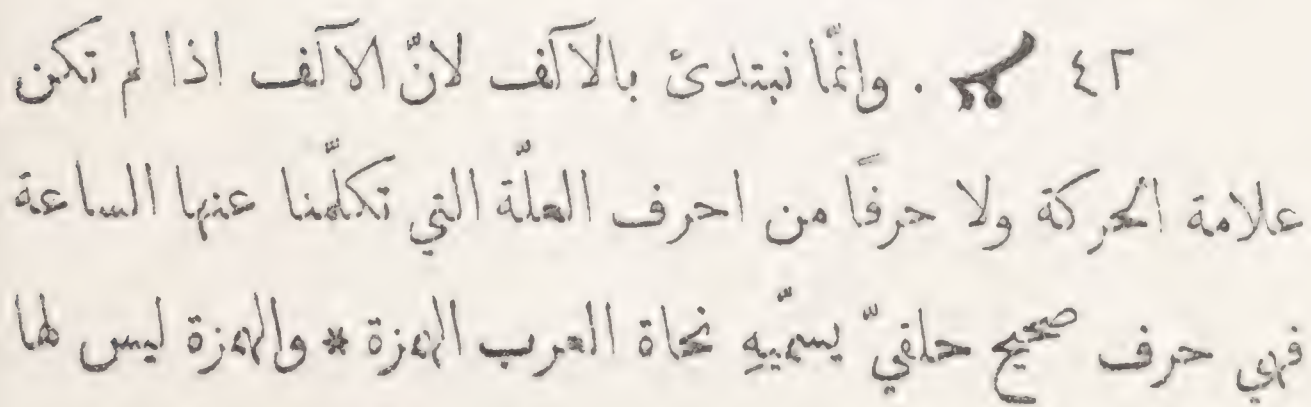 ٤٢ . وانَّما نبتدئ بالالف لانّ الالف اذا لم تكن
علامة الحركة ولا حرفًا من احرف العلّة التي تكلّمنا عنها الساعة
فهي حرف صحيح حلقيّ يسمّيهِ نحاة العرب الهمزة * والهمزة ليس لها